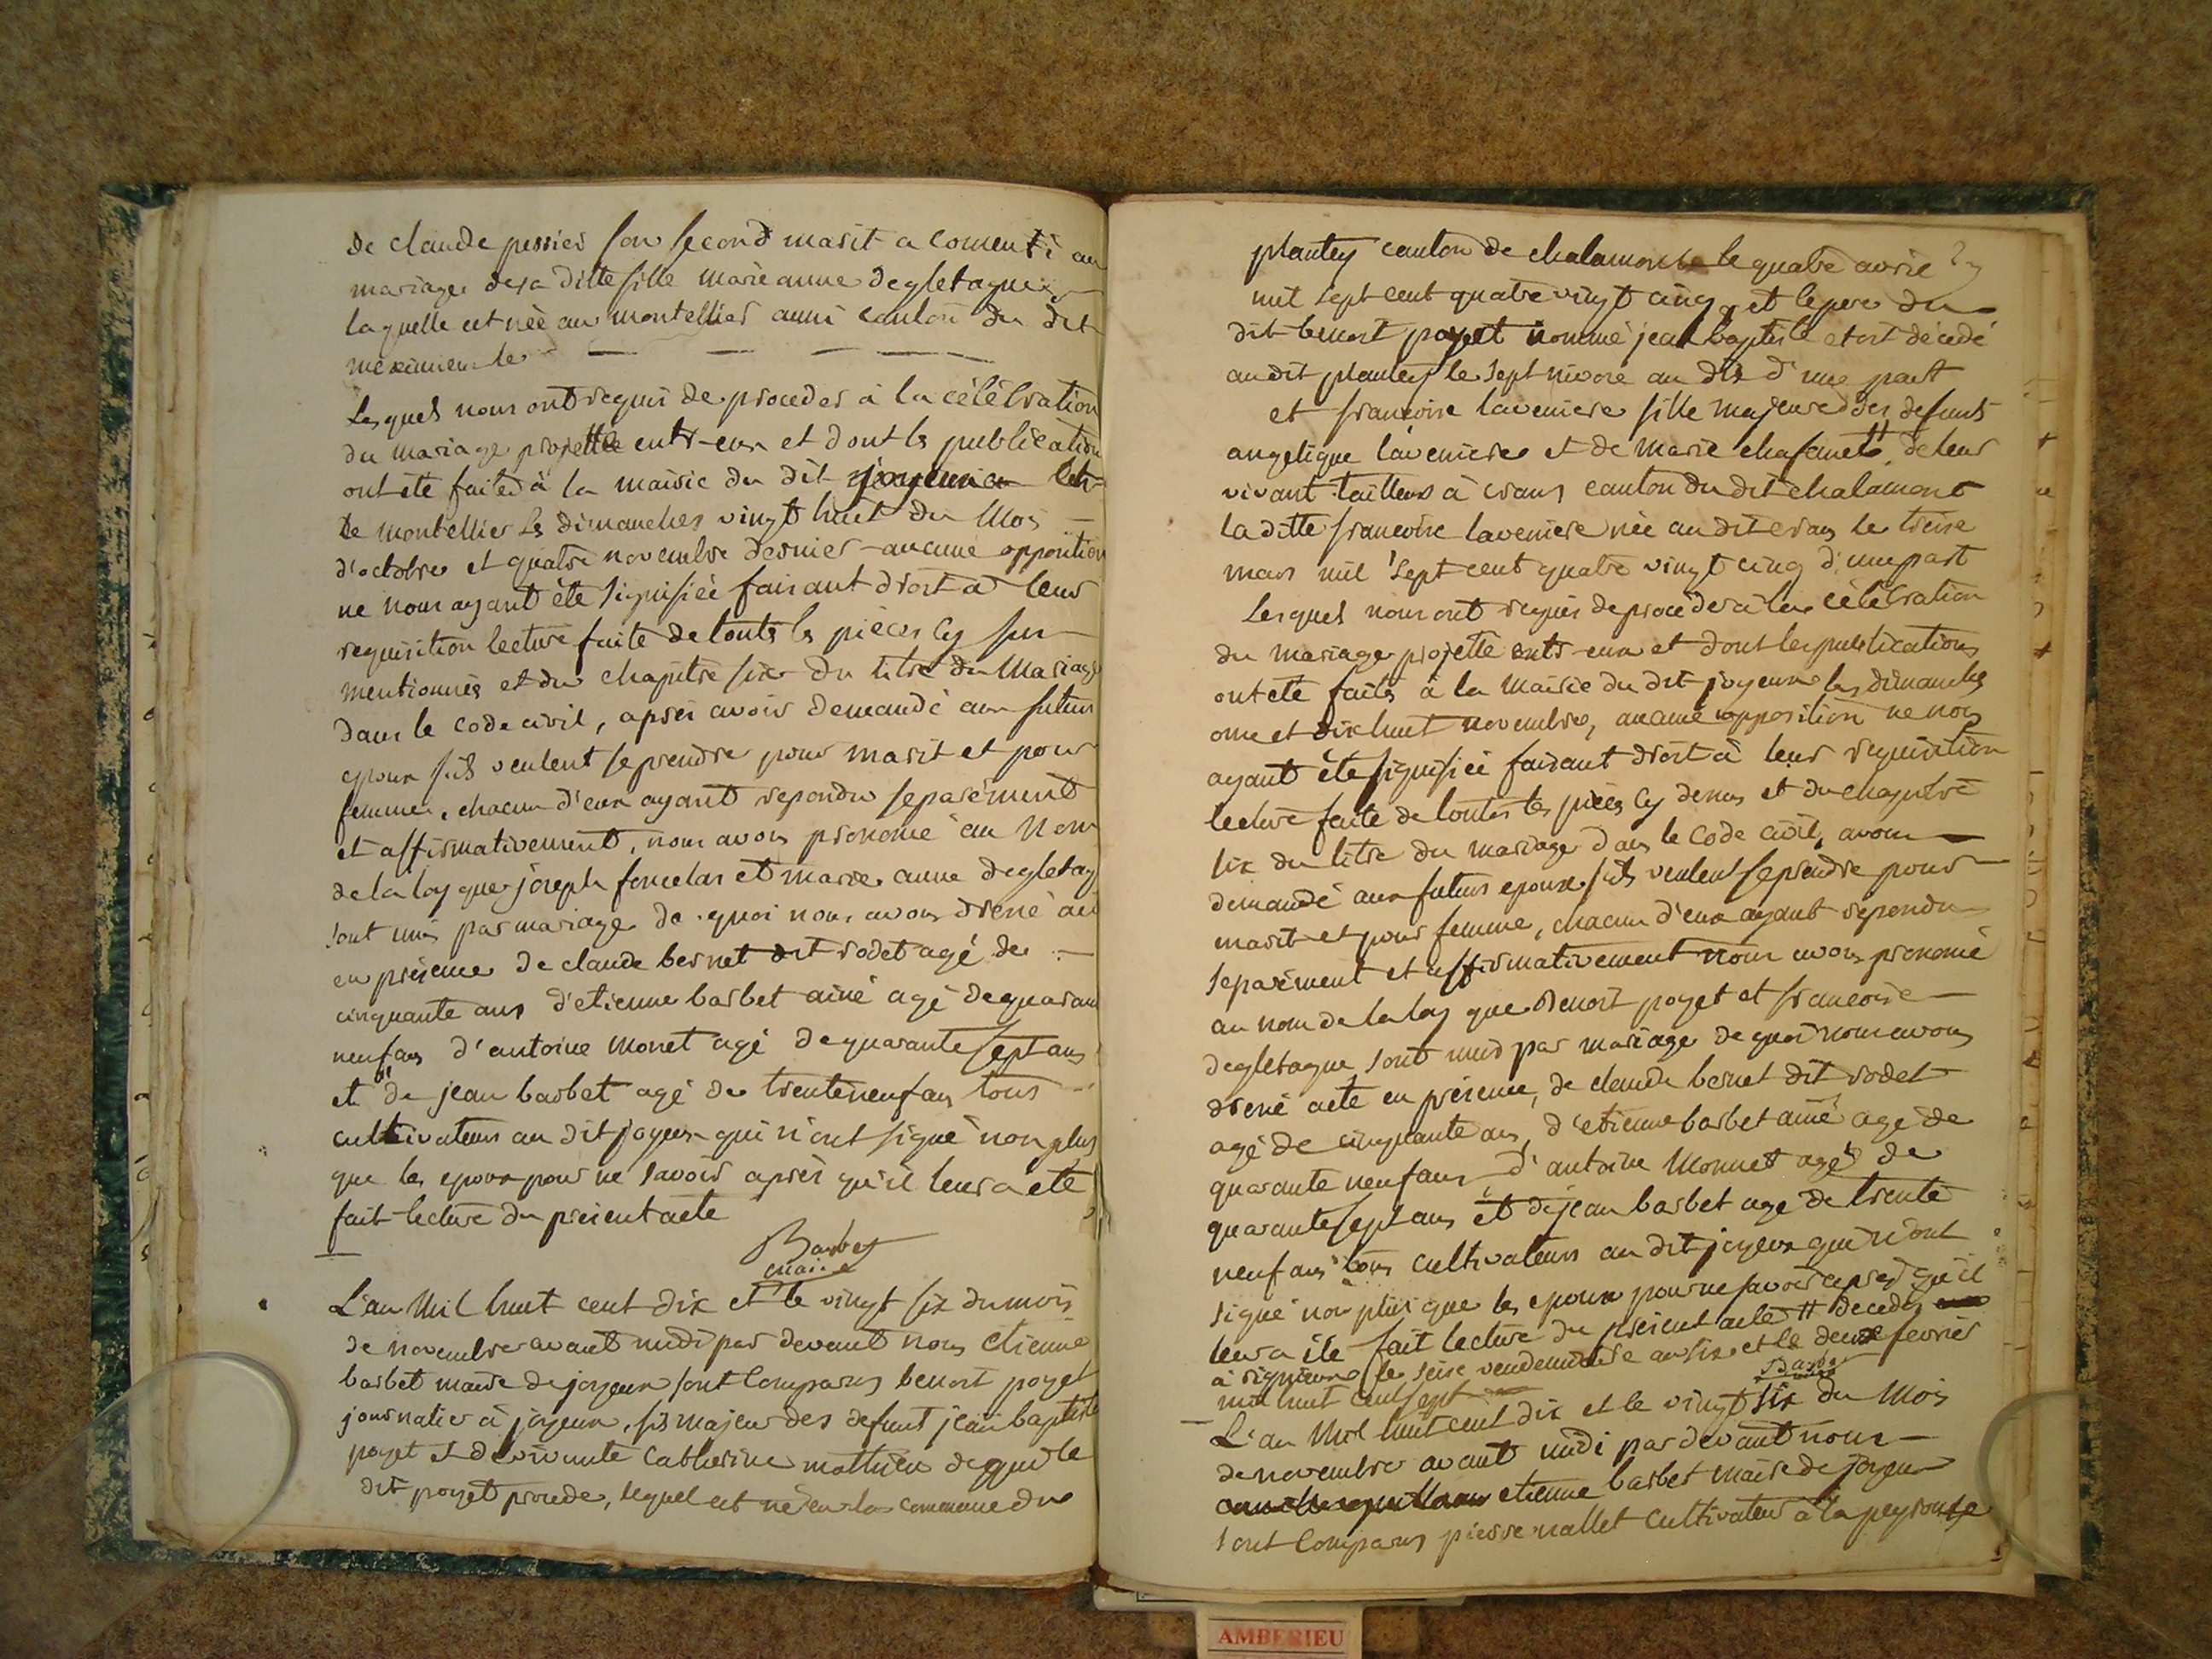 de claude perrier son second marit a consenti au
mariage de sa ditte fille marie anne degletagne
laquelle est née au montellier aussi canton du dit
meximieu le
Lesquels nous ont requis de proceder à la célébration
du mariage projetté entr-eux et dont les publication
ont été faites à la mairie du dit joyeux
de montellier les dimanches vingt huit du Mois
d'octobre et quatre novembre dernier aucune opposition
ne nous ayant été signifiée faisant droit à leur
requisition lecture faite de toutes les pièces cy sus
mentionnés et du chapitre six du titre du Mariage
dans le code civil, après avoir demandé aux futurs
epoux s'ils veulent se prendre pour marit et pour
femme, chacun d'eux ayant repondu separément
et affirmativement, nous avons prononcé au Nom
de la loy que joseph foncelas et marie anne degletag
sont unis par mariage de quoi nous avons dressé acte
en présence de claude bernet dit rodet agé de
cinquante ans d'etienne barbet ainé agé de quarant
neuf ans d'antoine Monet agé de quarante sept ans
et de jean barbet agé de trente neuf ans tous
cultivateurs au dit joyeux qui n'ont signé non plus
que les epoux pour ne savoir après qu'il leur a été
fait lecture du présent acte
Barbet
maire
L'an Mil huit cent dix et le vingt six du mois
de novembre avant midi par devant nous etienne
barbet maire de joyeux sont comparus benoit poyet
journalier à joyeux, fils majeur des defunt jean baptiste
poyet et de vivante Catherine mathieu de qui le
dit poyet procede, lequel est né en la commune du
plantey canton de chalamont le quatre avril
mil sept cent quatre vingt cinq, et le pere du
dit benoit poyet nommé jean baptiste etoit décédé
au dit plantey le sept nivose an dix d'une part
et francoise laveniere fille majeure des defunts
angelique laveniere et de marie chafanet # de leur
vivant tailleur à crans canton du dit chalamont
la ditte francoise laveniere née au dit crans le treise
mars mil sept cent quatre vingt cinq d'une part
Lesquels nous ont requis de proceder à la célébration
du mariage projetté entr-eux et dont les publications
ont été faites à la Mairie du dit joyeux les dimanches
onze et dix huit novembre, aucune opposition ne nous
ayant été signifiée faisant droit à leur requisition
lecture faite de toutes les pièces cy dessus et du chapitre
six du titre du mariage dans le code civil, avons
demandé aux futurs epoux s'ils veulent se prendre pour
marit et pour femme, chacun d'eux ayant repondu
separément et affirmativement nous avons prononcé
au nom de la loy que Benoit poyet et francoise
degletagne sont unis par mariage de quoi nous avons
dressé acte en présence, de claude bernet dit rodet
agé de cinquante ans, d'etienne barbet ainé agé de
quarante neuf ans, d'antoine Monnet agé de
quarante sept ans et de jean barbet agé de trente
neuf ans tous cultivateurs au dit joyeux qui n'ont
signé non plus que les epoux pour ne savoir après qu'il
leur a été fait lecture du présent acte # decedés
à rignieux le seise vendemiaire an six et le deux fevrier
mil huit cent sept
Barbet
maire
L'an Mil huit cent dix et le vingt six du Mois
de novembre avant midi par devant nous
etienne barbet maire de joyeux
sont comparus pierre mallet cultivateur à la peyrouse
AMBERIEU